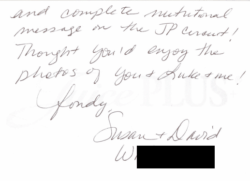 and complete nutritional
message on the JP circuit!
Thought you'd enjoy the
photos of you & Luke & me!
fondly,
Susan & David
W
PLUS